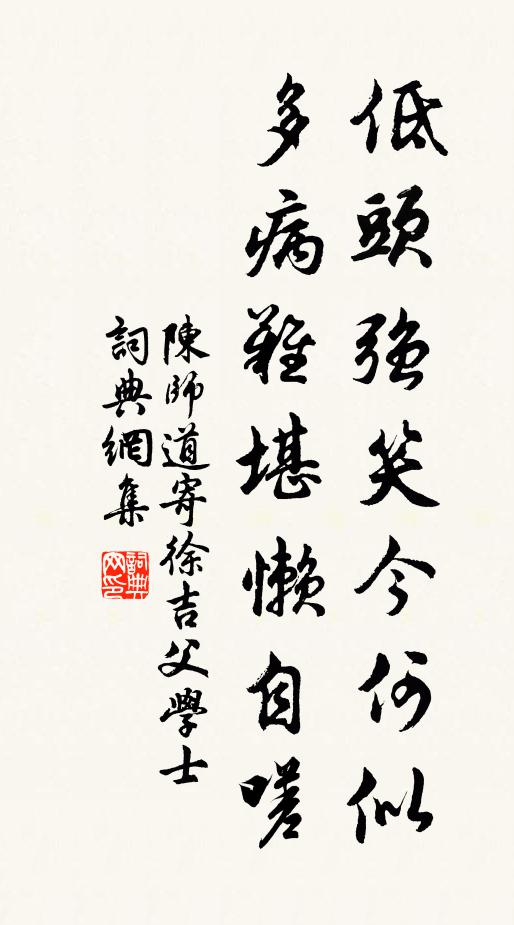 低頭強笑今何似
多病難堪懶自嗟
陳師道寄徐吉父學士
詞典網集
詞典
网印